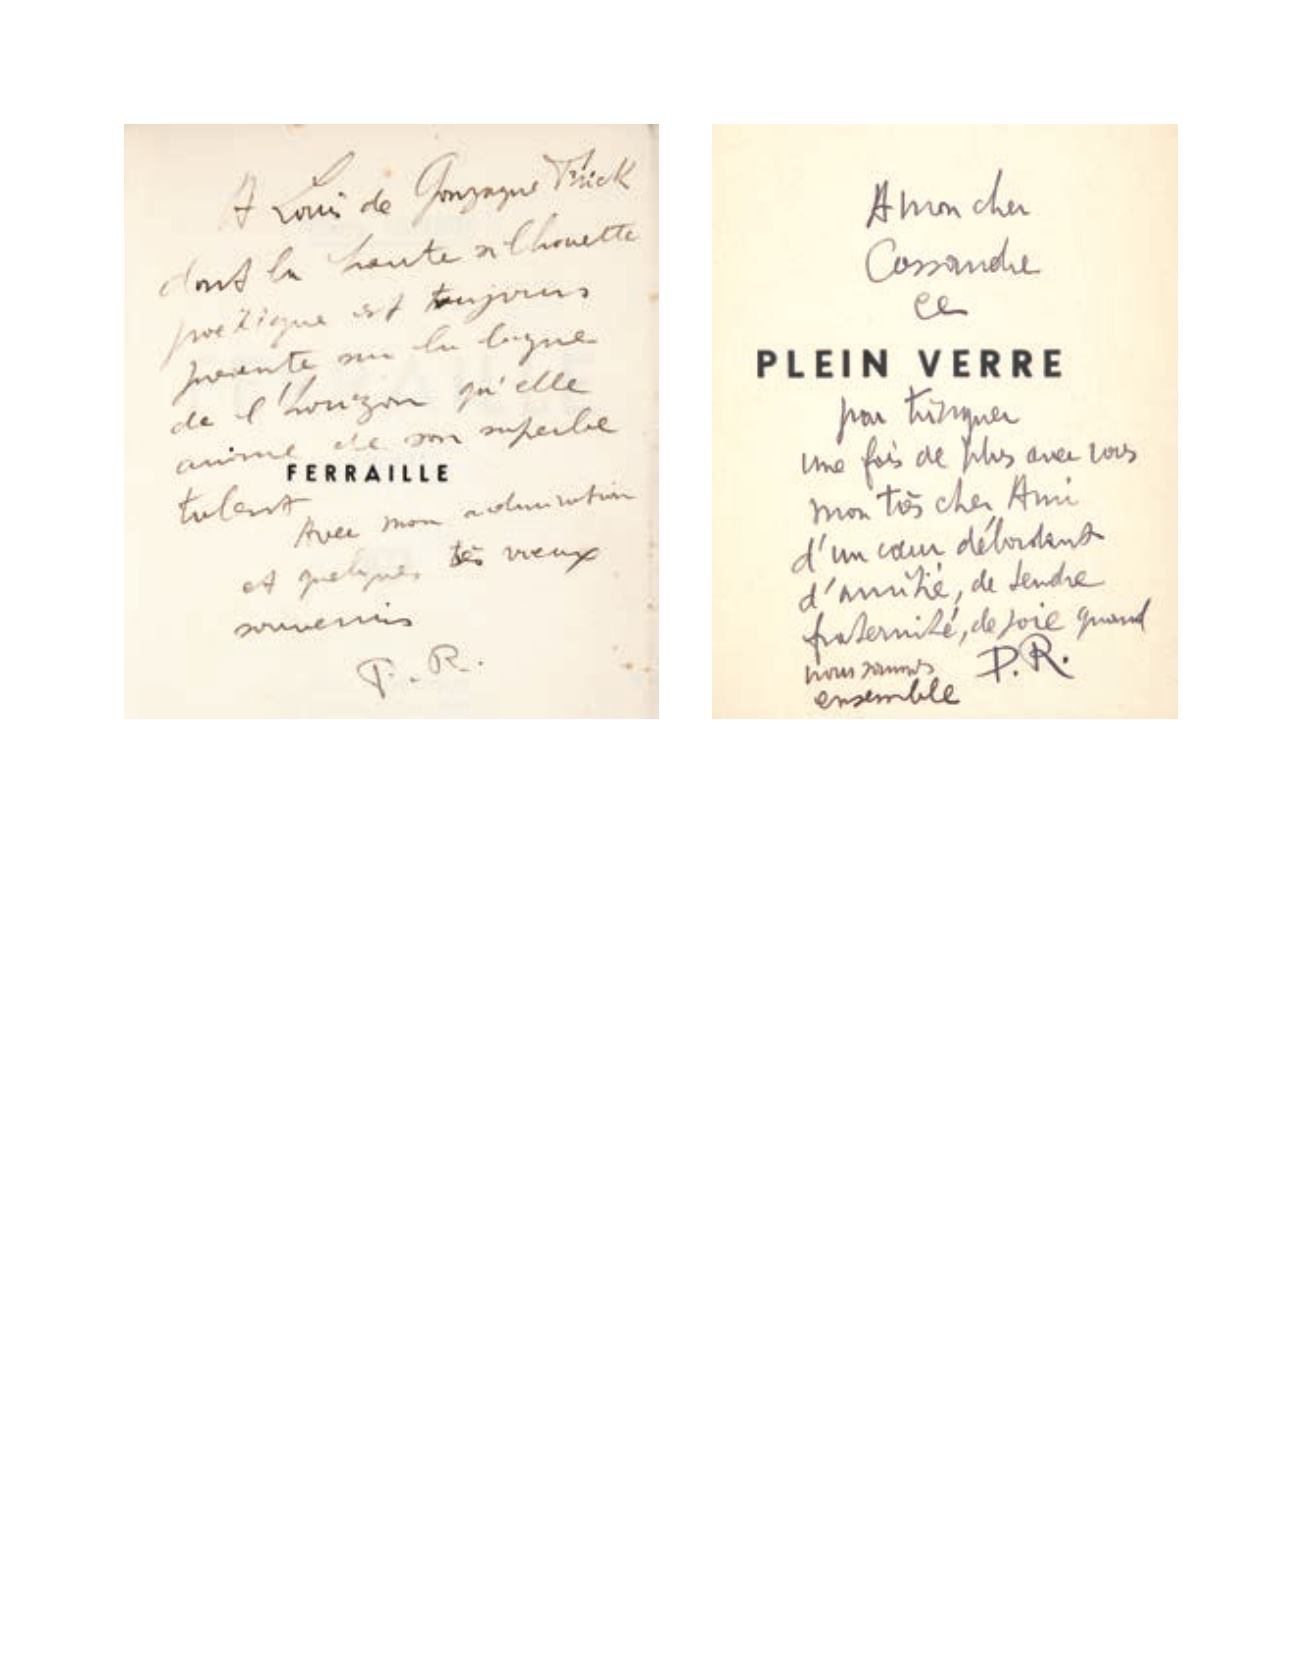 A Louis de Gonzague Frick
dont la haute silhouette
poétique est toujours
présente sur la ligne
de l'horizon qu'elle
anime de son superbe
FERRAILLE
talent
Avec mon admiration
et quelques très vieux
souvenirs
P. R.
A mon cher
Cassandre
ce
PLEIN VERRE
pour trinquer
une fois de plus avec vous
mon très cher Ami
d'un cœur débordant
d'amitié, de tendre
fraternité, de joie quand
nous sommes P. R.
ensemble